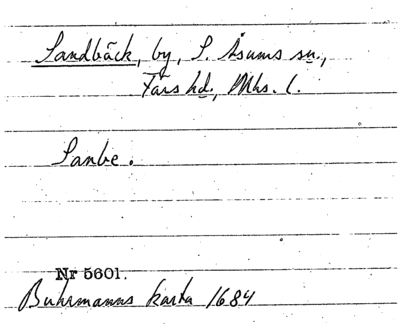 Sandbäck, by, S. Åsums sn.,
Färs hd., Mhs. l.
Sanbe.
Nr 5601.
Buhrmanns karta 1684